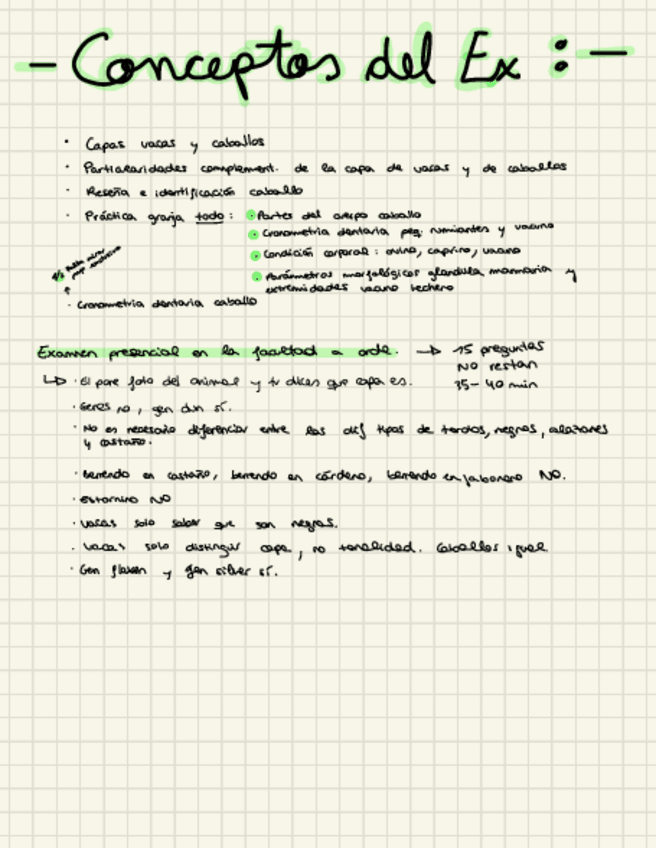 - Conceptos del Ex : -
· Capas vacas y caballos
· Particularidades complement. de la capa de vacas y de caballos
· Reseña e identificación caballo
· Práctica granja todo : · Partes del cuerpo caballo
· Cronometria dentaria peq. rumiantes y vacuno
· Condición corporal : ovino, caprino, vacuno
· Parámetros morfológicos glandula mammaria y
extremidades vacuno lechero
· Cronometria dentaria caballo
Examen presencial en la facultad a orde. → 15 preguntas
NO restan
35-40 min
↳ · El pone foto del animal y tu dices que capa es.
· Genes no, gen dun sí.
· No es necesario diferenciar entre las dif tipos de tordos, negros, alazanes
y castaño.
· berrendo en castaño, berrendo en cárdeno, berrendo en jabonero NO.
· Estornino NO
· vacas solo saber que son negras.
· vacas solo distinguir capa, no tonalidad. Caballos igual
· Gen flaxen y gen silver sí.